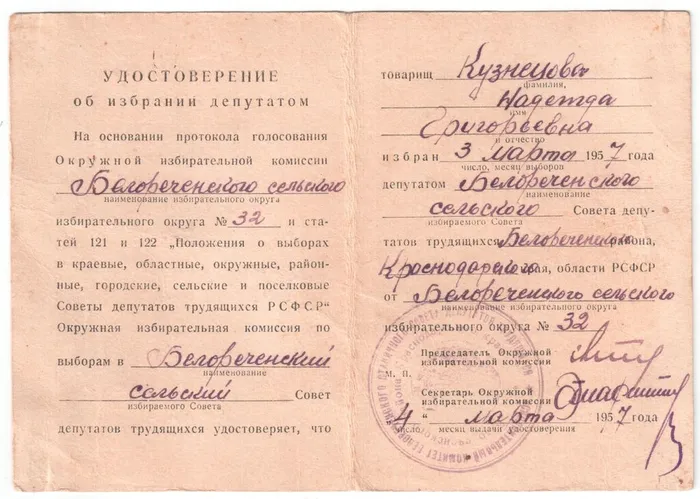 УДОСТОВЕРЕНИЕ
об избрании депутатом
На основании протокола голосования
Окружной избирательной комиссии
Белореченского сельского
наименование избирательного округа
избирательного округа № 32 и ста-
тей 121 и 122 „Положения о выборах
в краевые, областные, окружные, район-
ные, городские, сельские и поселковые
Советы депутатов трудящихся РСФСР“
Окружная избирательная комиссия по
выборам в Белореченский
наименование
сельский Совет
избираемого Совета
депутатов трудящихся удостоверяет, что
товарищ Кузнецова
фамилия,
Надежда
имя
Григорьевна
и отчество
избран 3 марта 1957 года
число, месяц выборов
депутатом Белореченского
наименование
сельского Совета депу-
избираемого Совета
татов трудящихся Белореченского района,
Краснодарского края, области РСФСР
от Белореченского сельского
избирательного округа № 32
Председатель Окружной
избирательной комиссии
м. п.
Секретарь Окружной
избирательной комиссии
4 " марта 1957 года
число, месяц выдачи удостоверения